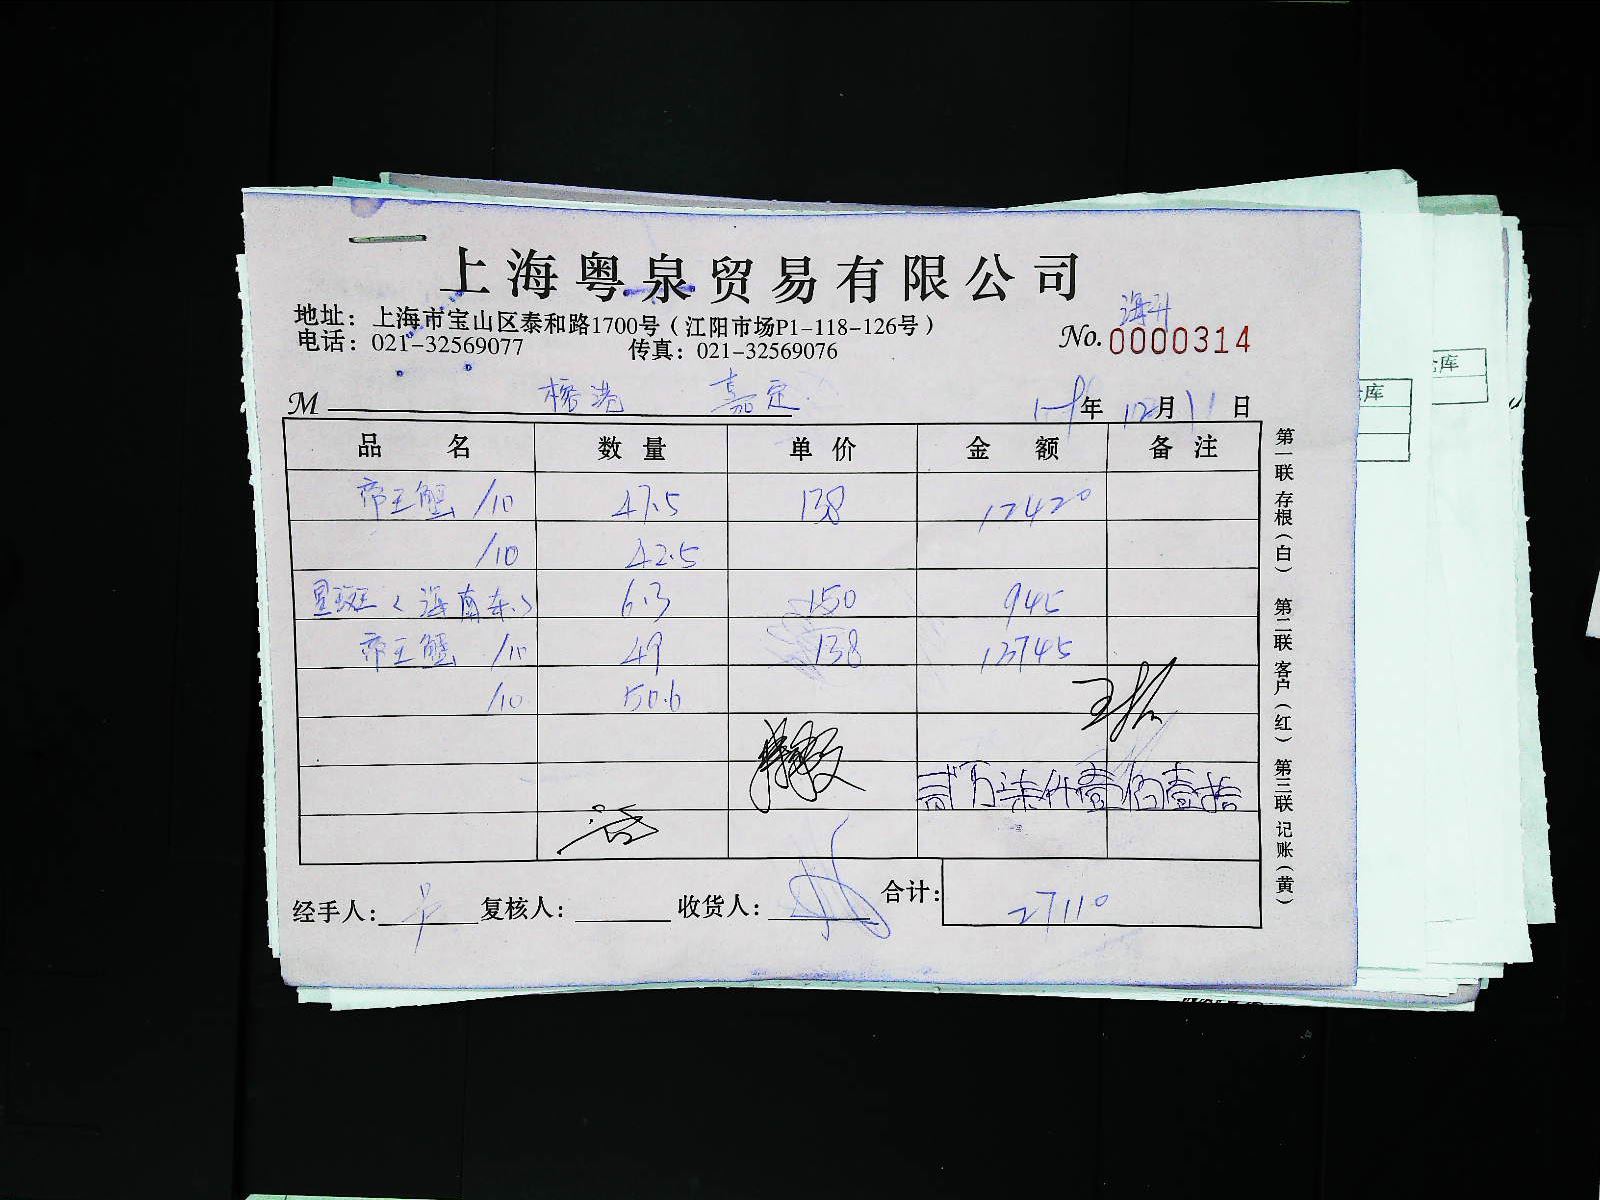 上海粤泉贸易有限公司
地址：上海市宝山区泰和路1700号（江阳市场P1-118-126号）
海升
电话：021-32569077 传真：021-32569076 No.0000314
M 榕港 嘉定 年 12月11日
品名 数量 单价 金额 备注
帝王蟹 /10 47.5 138 12420
/10 42.5
星斑（海南东） 6.3 150 945
帝王蟹 /10 49 138 13745
/10 50.6
贰万柒仟壹佰壹拾
经手人： 复核人： 收货人： 合计：27110
第一联 存根（白） 第二联 客户（红） 第三联 记账（黄）
库
库